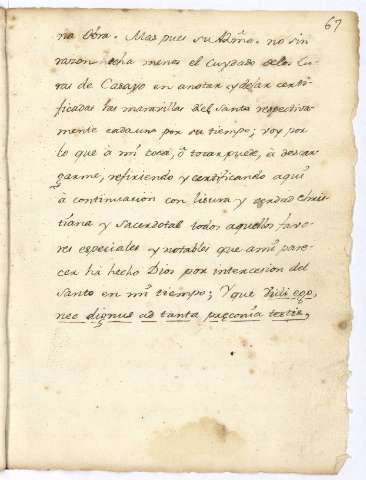 67
na Obra. Mas pues su Alma. no sin
razon hecha menos el Cuydado de los Cu-
ras de Casayo en anotar, y dejar certi-
ficadas las maravillas del Santo respectiva-
mente cada uno por su tiempo; voy por
lo que à mi toca, ô tocar puede, à descar-
garme, refiriendo y certificando aqui
à continuacion con lisura y verdad chris-
tiana y sacerdotal todos aquellos favo-
res especiales y notables que a mi pare-
cer ha hecho Dios por intercesion del
Santo en mi tiempo; Y que Vidi ego,
nec dignus ad tanta preconia testis,